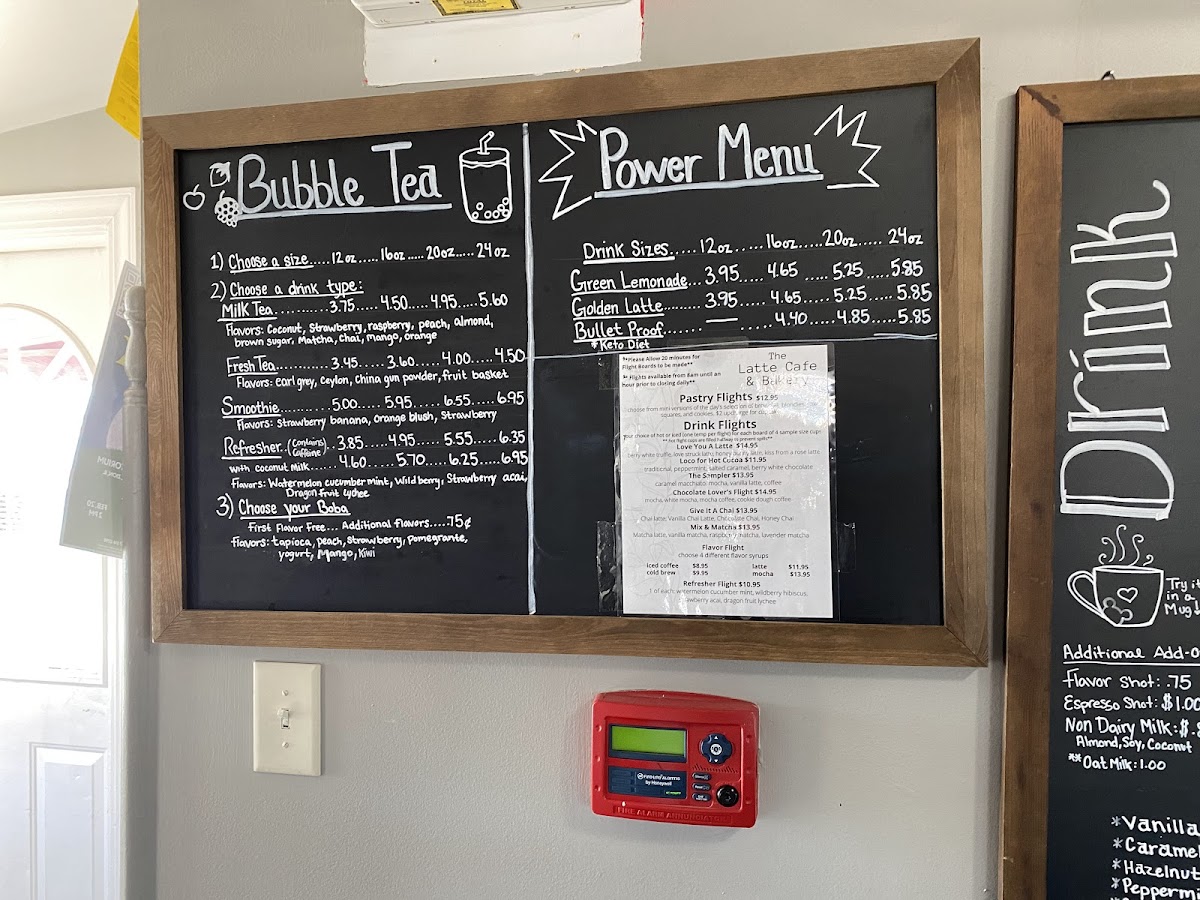 Bubble Tea
1) Choose a size.....12oz.....16oz.....20oz.....24oz
2) Choose a drink type:
Milk Tea..........3.75.....4.50.....4.95.....5.60
Flavors: Coconut, Strawberry, raspberry, peach, almond,
brown sugar, Matcha, chai, mango, orange
Fresh Tea..........3.45.....3.60.....4.00.....4.50
Flavors: earl grey, Ceylon, china gun powder, fruit basket
Smoothie..........5.00.....5.95.....6.55.....6.95
Flavors: strawberry banana, orange blush, strawberry
Refresher (Contains Caffeine) .3.85.....4.95.....5.55.....6.35
with coconut Milk......4.60.....5.70.....6.25.....6.95
Flavors: Watermelon cucumber mint, Wild berry, Strawberry acai,
Dragon fruit lychee
3) Choose your Boba
First Flavor Free... Additional flavors....75¢
flavors: tapioca, peach, strawberry, pomegrante,
yogurt, Mango, Kiwi
Power Menu
Drink Sizes.....12oz.....16oz.....20oz.....24oz
Green Lemonade...3.95.....4.65.....5.25.....5.85
Golden Latte......3.95.....4.65.....5.25.....5.85
Bullet Proof......—.....4.40.....4.85.....5.85
*Keto Diet
**Please Allow 20 minutes for
Flight Boards to be made**
** Flights available from 8am until an
hour prior to closing daily**
The
Latte Cafe
& Bakery
Pastry Flights $12.95
choose from mini versions of the day's selection of
squares, and cookies. $2 upcharge for
Drink Flights
your choice of hot or iced (one temp per flight) for each board of 4 sample size
** hot flight cups are filled halfway to prevent spills**
Love You A Latte $14.95
berry white truffle, love struck latte, honey bunny latte, kiss from a rose latte
Loco for Hot Cocoa $11.95
traditional, peppermint, salted caramel, berry white chocolate
The Sampler $13.95
caramel macchiato, mocha, vanilla latte, coffee
Chocolate Lover's Flight $14.95
mocha, white mocha, mocha coffee, cookie dough coffee
Give It A Chai $13.95
Chai latte, Vanilla Chai Latte, Chocolate Chai, Honey Chai
Mix & Matcha $13.95
Matcha latte, vanilla matcha, raspberry matcha, lavender matcha
Flavor Flight
choose 4 different flavor syrups
iced coffee $8.95 latte $11.95
cold brew $9.95 mocha $13.95
Refresher Flight $10.95
1 of each: watermelon cucumber mint, wildberry hibiscus,
strawberry acai, dragon fruit lychee
Drink
Try it
in a
Mug
Additional Add-o
Flavor Shot: .75
Espresso Shot: $1.00
Non Dairy Milk: $.8
Almond, Soy, Coconut
**Oat Milk: 1.00
*Vanilla
*Caramel
*Hazelnut
*Peppermi
by Honeywell
FIRE ALARM ANNUNCIATOR